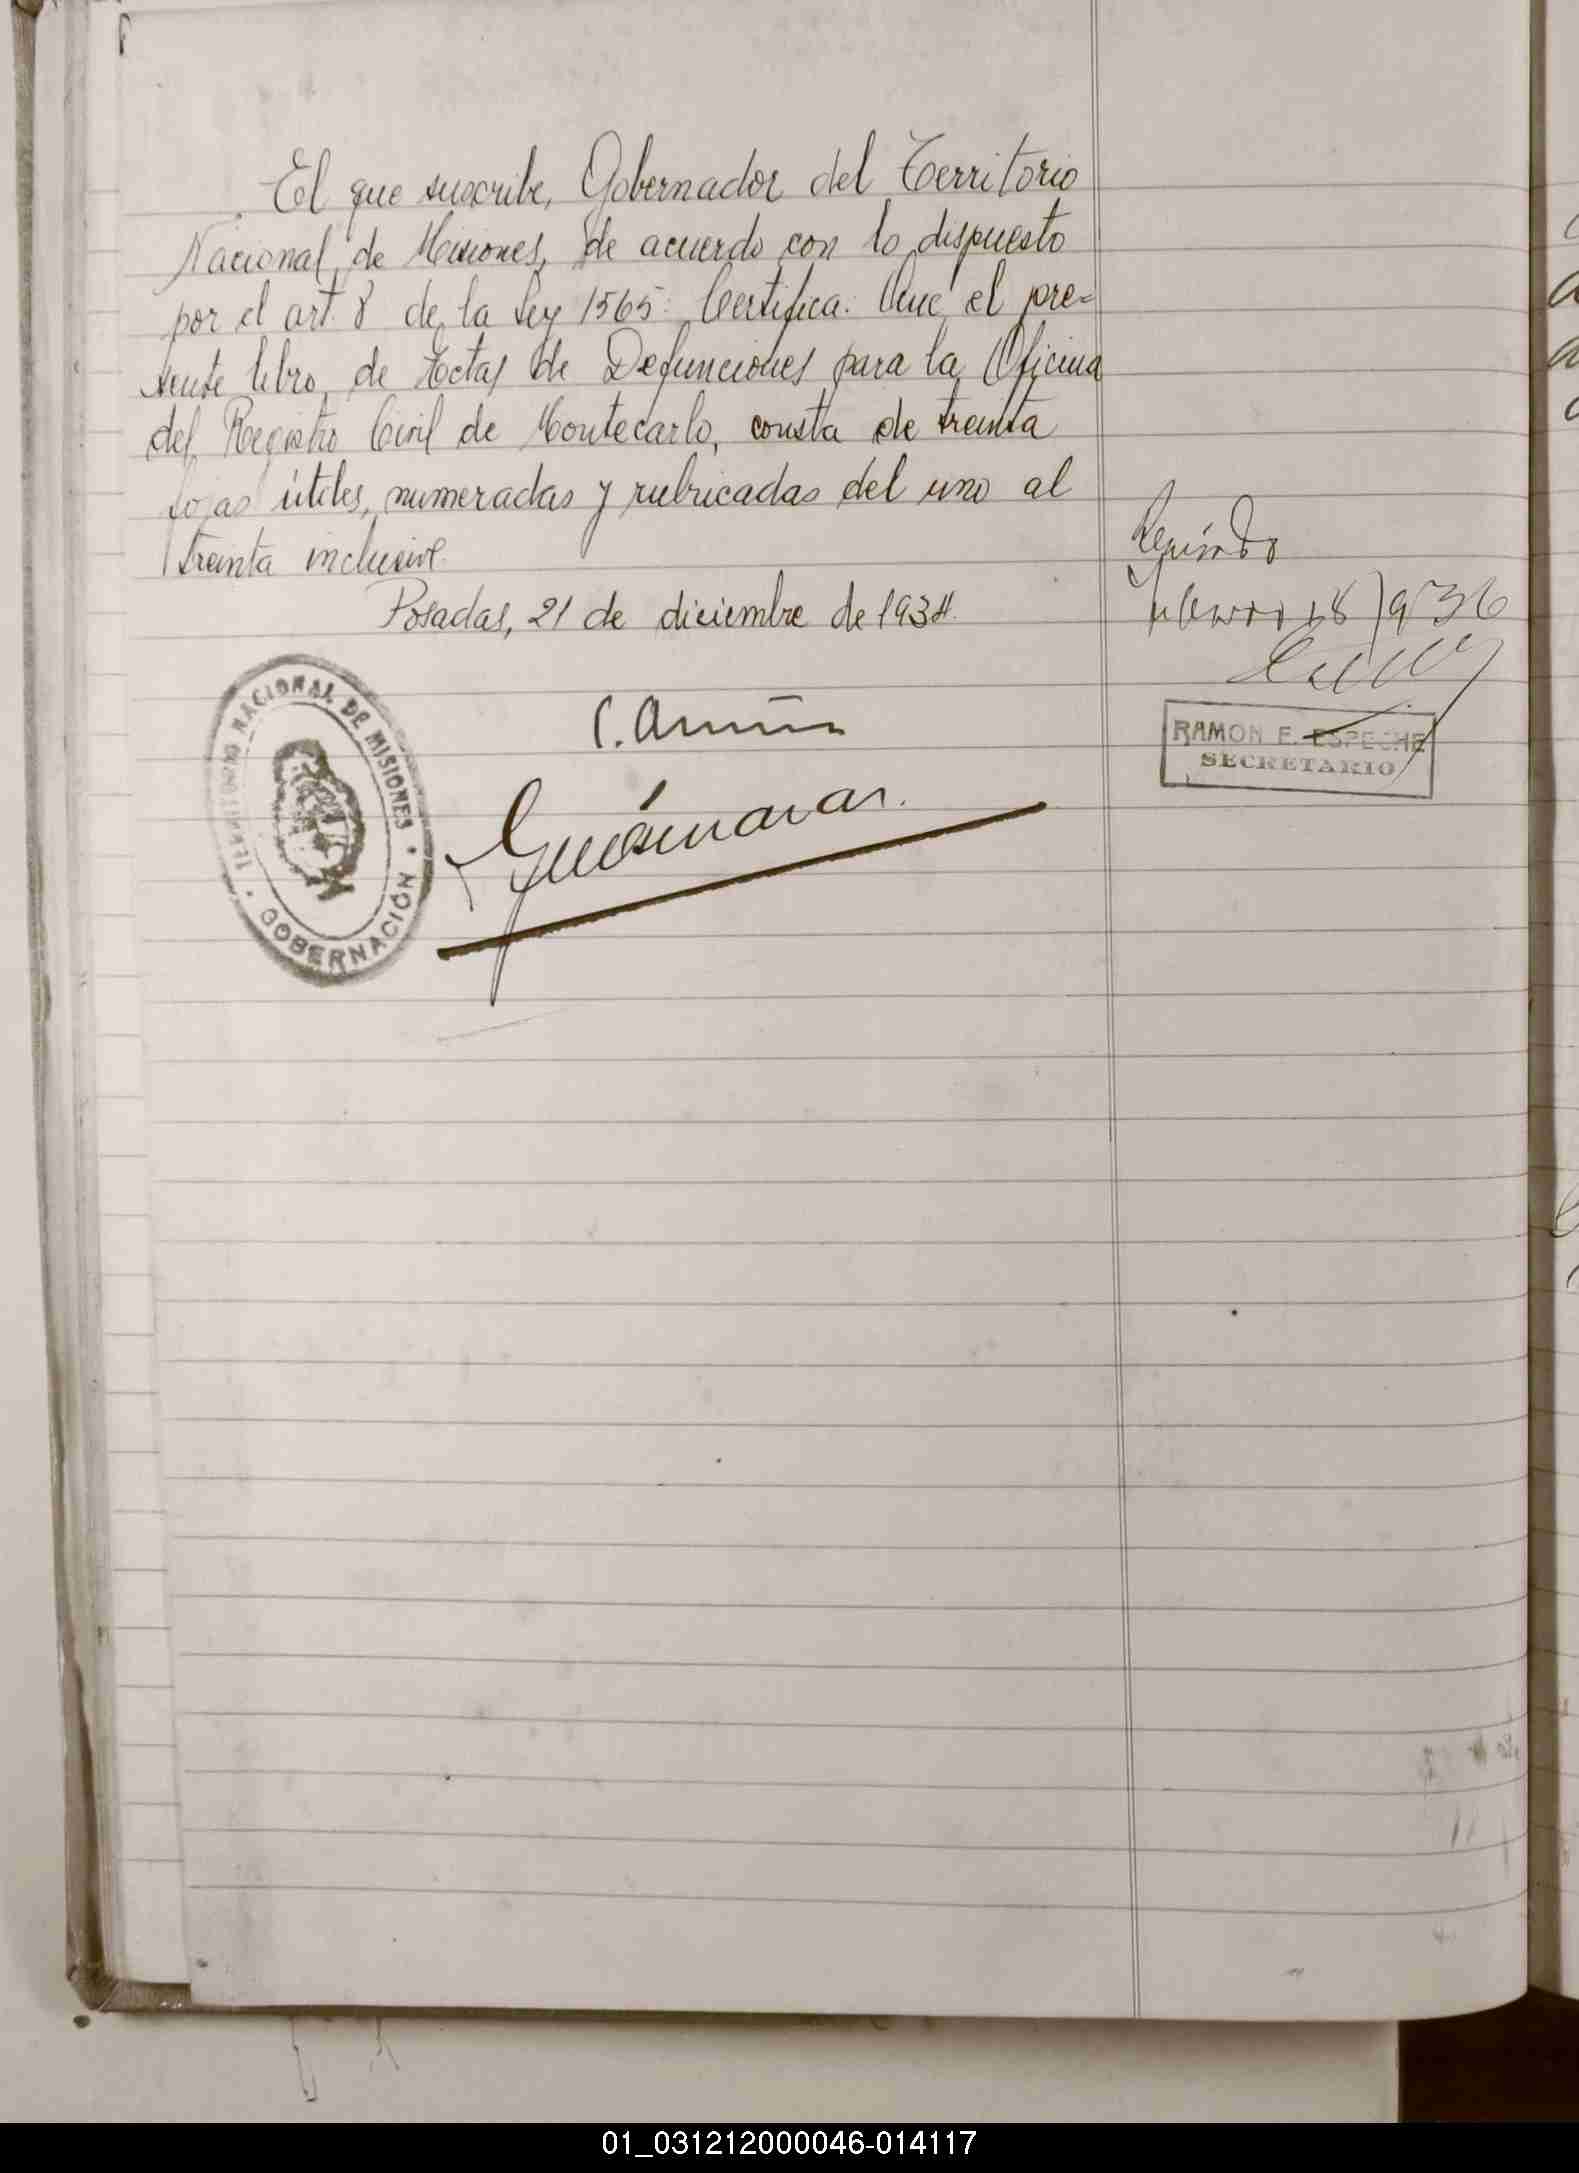 El que suscribe, Gobernador del Territorio
Nacional de Misiones, de acuerdo con lo dispuesto
por el art. 8 de la Ley 1565: Certifica: Que el pre=
sente libro de Actas de Defunciones para la Oficina
del Registro Civil de Montecarlo, consta de treinta
fojas útiles, numeradas y rubricadas del uno al
treinta inclusive.
Posadas, 21 de diciembre de 1934.
TERRITORIO NACIONAL DE MISIONES
GOBERNACIÓN
18/936
RAMON E. ESPECHE
SECRETARIO
01_031212000046-014117